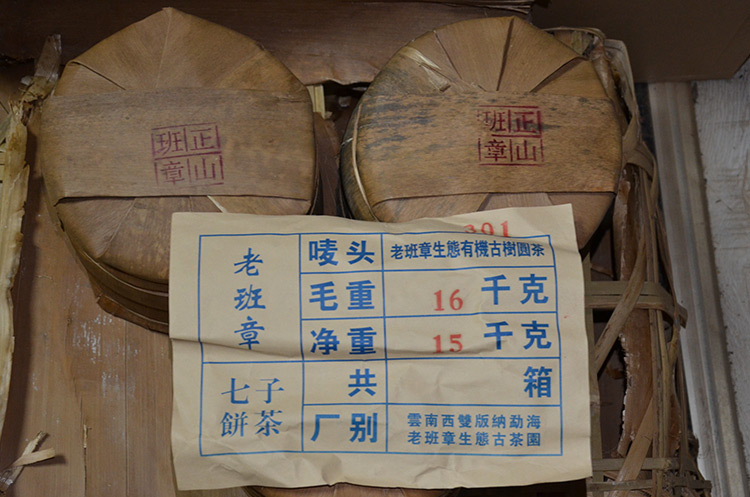 正山
班章
正山
班章
老班章
七子
餅茶
唛头 老班章生態有機古樹圓茶
毛重 16 千克
净重 15 千克
共 箱
厂别 雲南西雙版納勐海
老班章生態古茶園